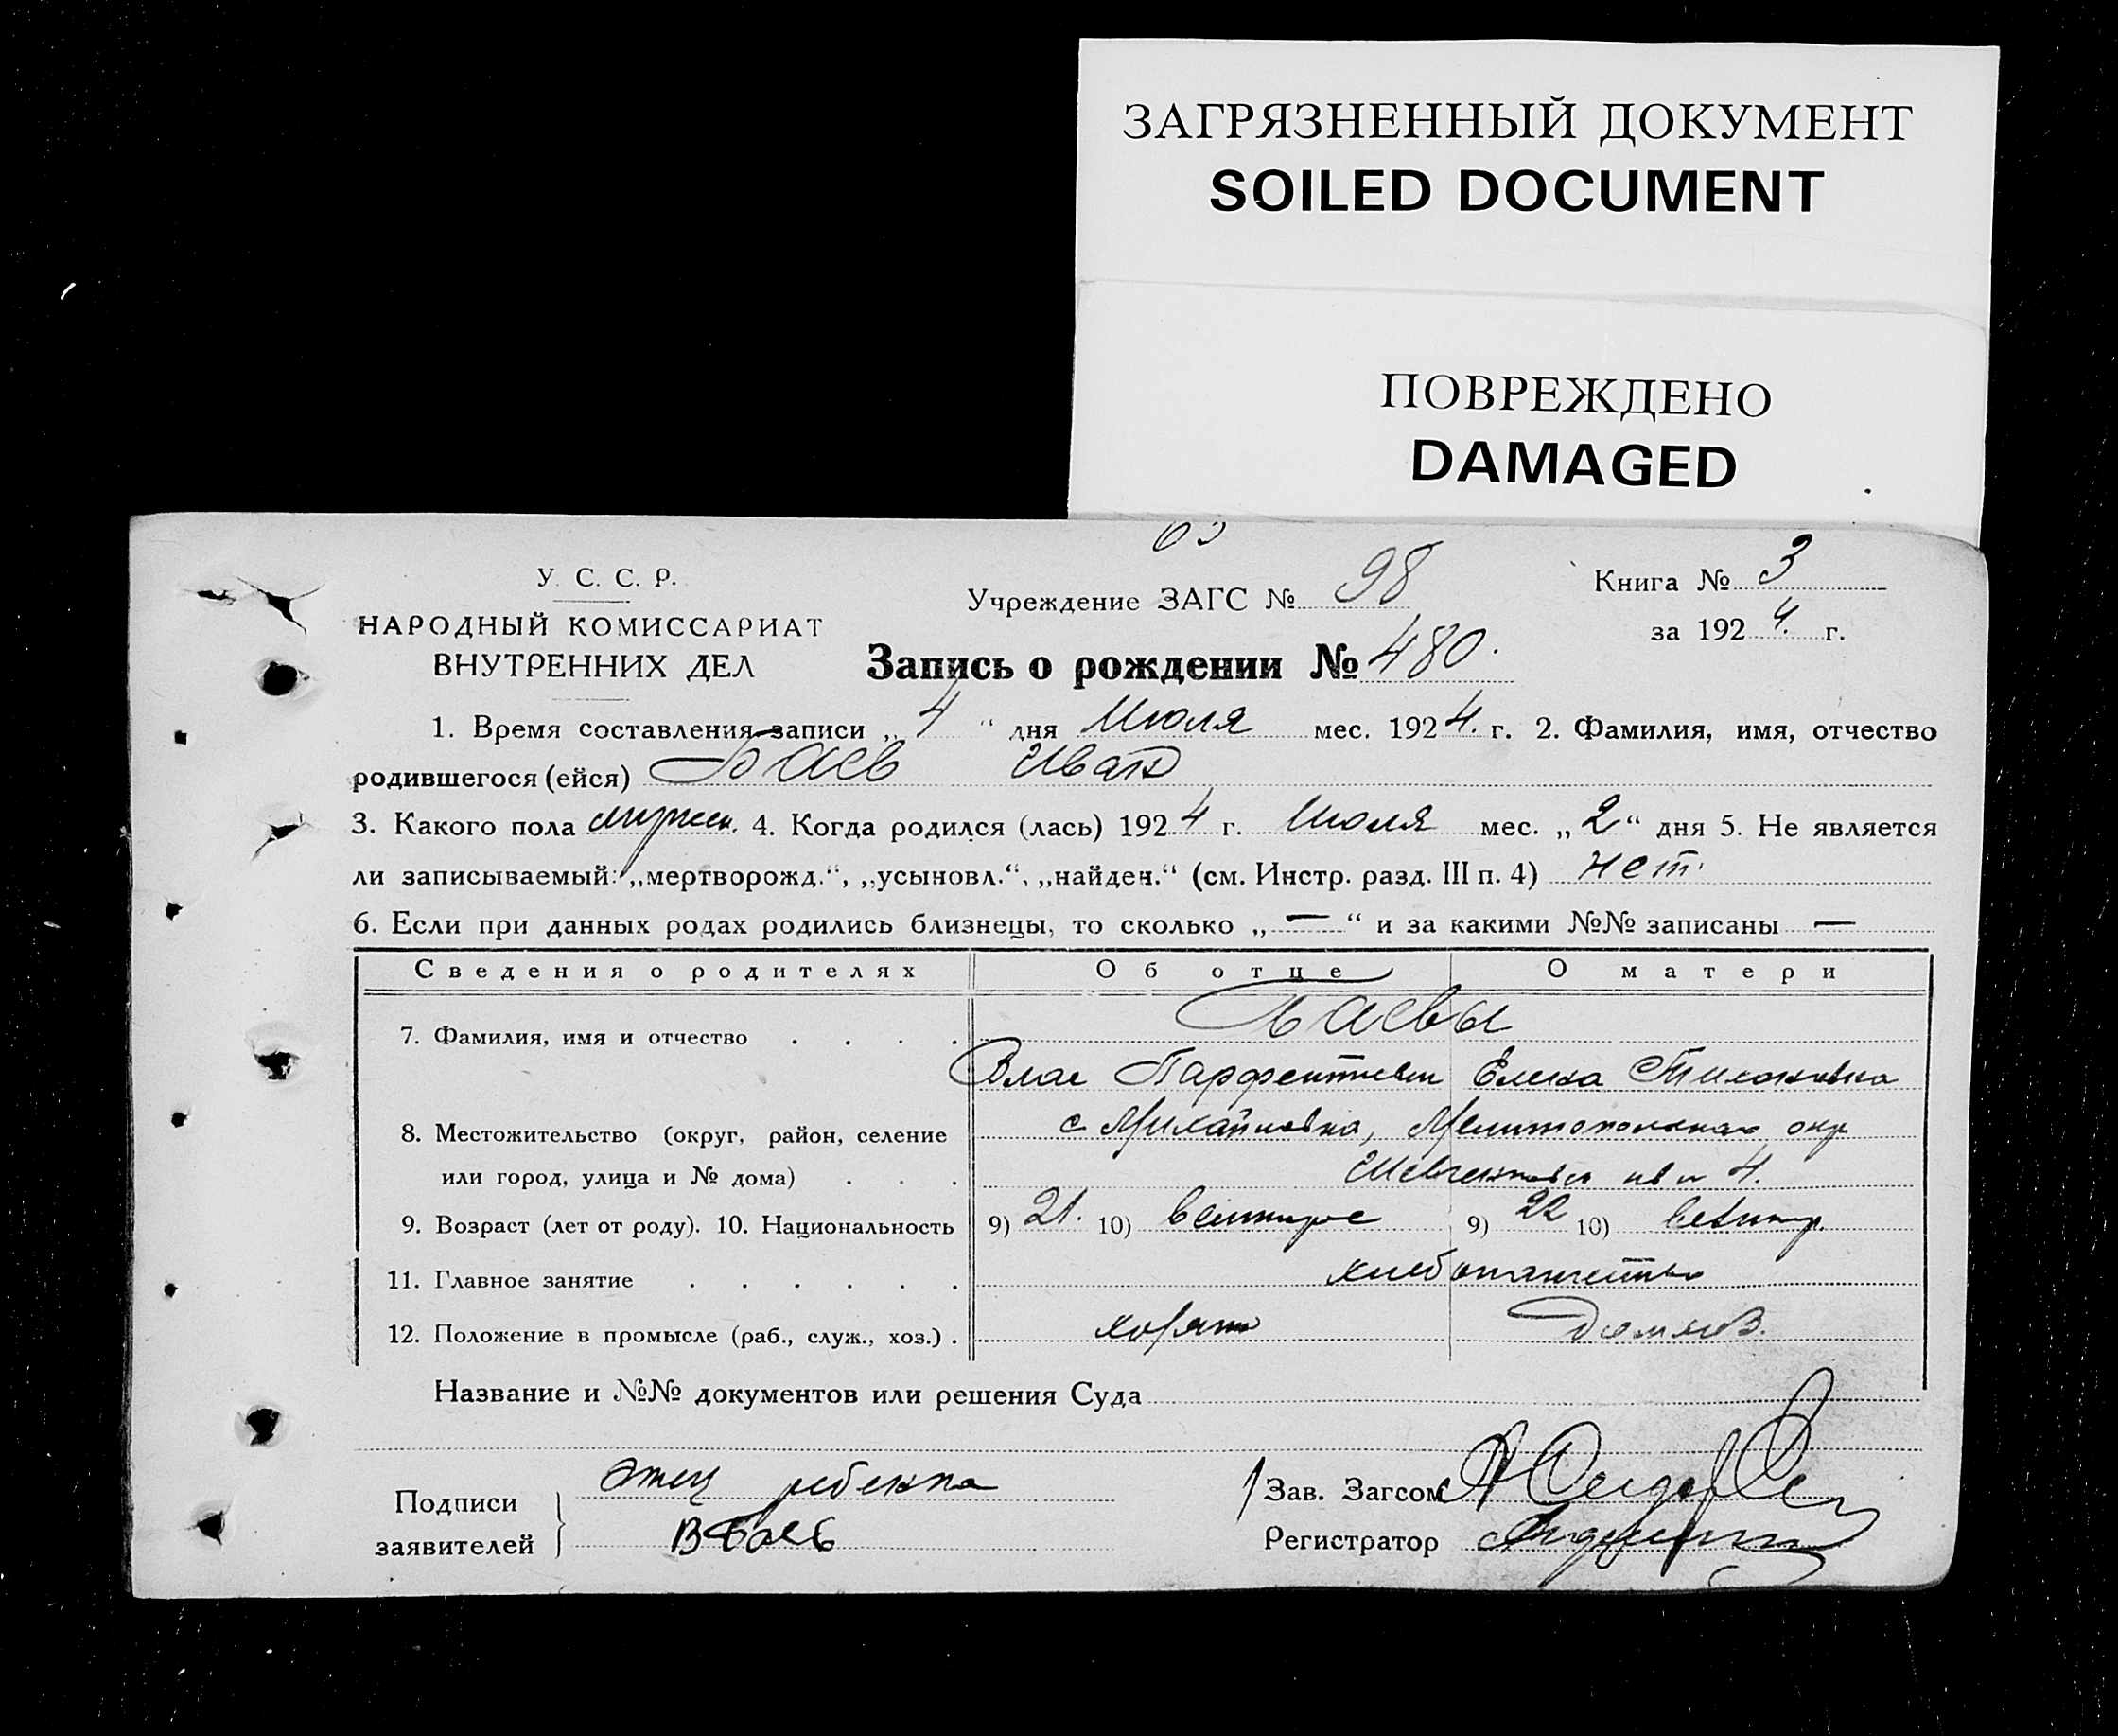 ЗАГРЯЗНЕННЫЙ ДОКУМЕНТ
SOILED DOCUMENT
ПОВРЕЖДЕНО
DAMAGED
У. С. С. Р.
НАРОДНЫЙ КОМИССАРИАТ
ВНУТРЕННИХ ДЕЛ
Учреждение ЗАГС № 98
Книга № 3
за 1924. г.
Запись о рождении № 480.
1. Время составления записи „ 4 “ дня Июля мес. 1924. г. 2. Фамилия, имя, отчество
родившегося (ейся) Баев Иван
3. Какого пола мужск. 4. Когда родился (лась) 1924 г. Июля мес. „ 2 “ дня 5. Не является
ли записываемый: „мертворожд.“, „усыновл.“, „найден.“ (см. Инстр. разд. III п. 4) нет.
6. Если при данных родах родились близнецы, то сколько „ — “ и за какими №№ записаны —
Сведения о родителях Об отце О матери
7. Фамилия, имя и отчество . . . . Баевы
Влас Парфентиевич Елена
8. Местожительство (округ, район, селение с Михайловка, Мелитопольская окр
или город, улица и № дома) . . . 4.
9. Возраст (лет от роду). 10. Национальность 9) 21. 10) великорос 9) 22 10) великор.
11. Главное занятие . . . . . . хлебопашество
12. Положение в промысле (раб., служ., хоз.) . хозяин домхоз.
Название и №№ документов или решения Суда
Подписи заявителей } отец ребенка
В Баев
Зав. Загсом
Регистратор